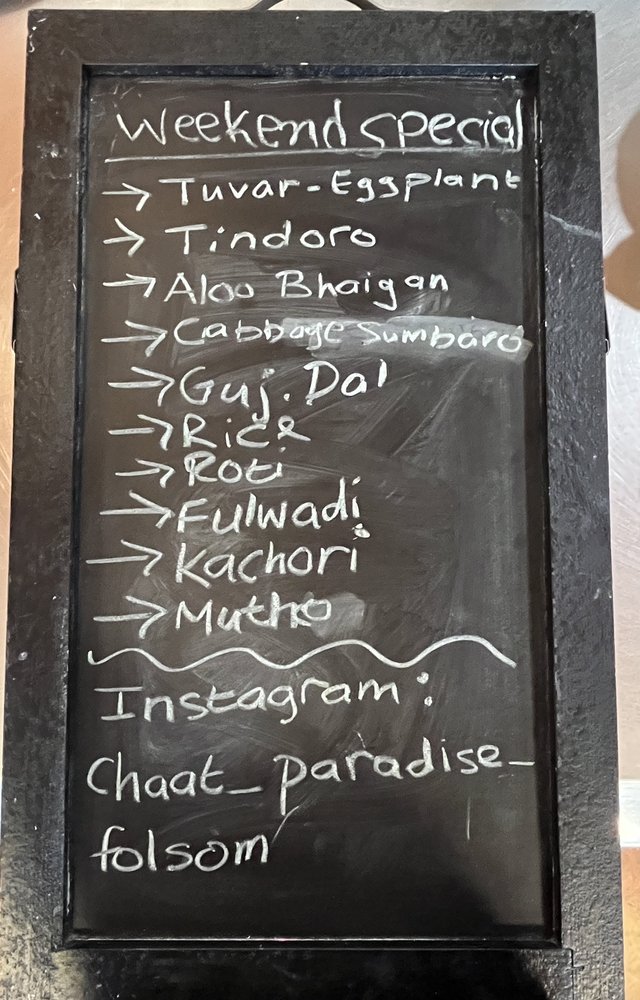 Weekend special
→ Tuvar-Eggplant
→ Tindoro
→ Aloo Bhaigan
→ Cabbage Sumbaro
→ Guj. Dal
→ Rice
→ Roti
→ Fulwadi
→ Kachori
→ Mutho
Instagram:
Chaat_paradise_
folsom